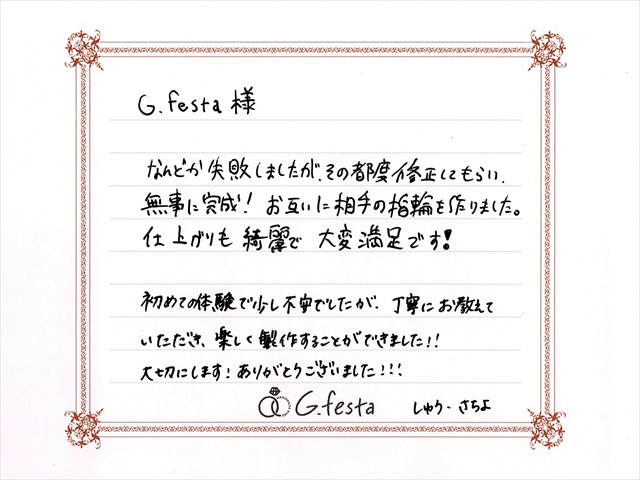 G.festa 様
なんどか失敗しましたが、その都度修正してもらい、
無事に完成! お互いに相手の指輪を作りました。
仕上がりも綺麗で 大変満足です!
初めての体験で少し不安でしたが、丁寧にお教えて
いただき、楽しく製作することができました!!
大切にします! ありがとうございました!!!
G.festa しゅう・さちよ